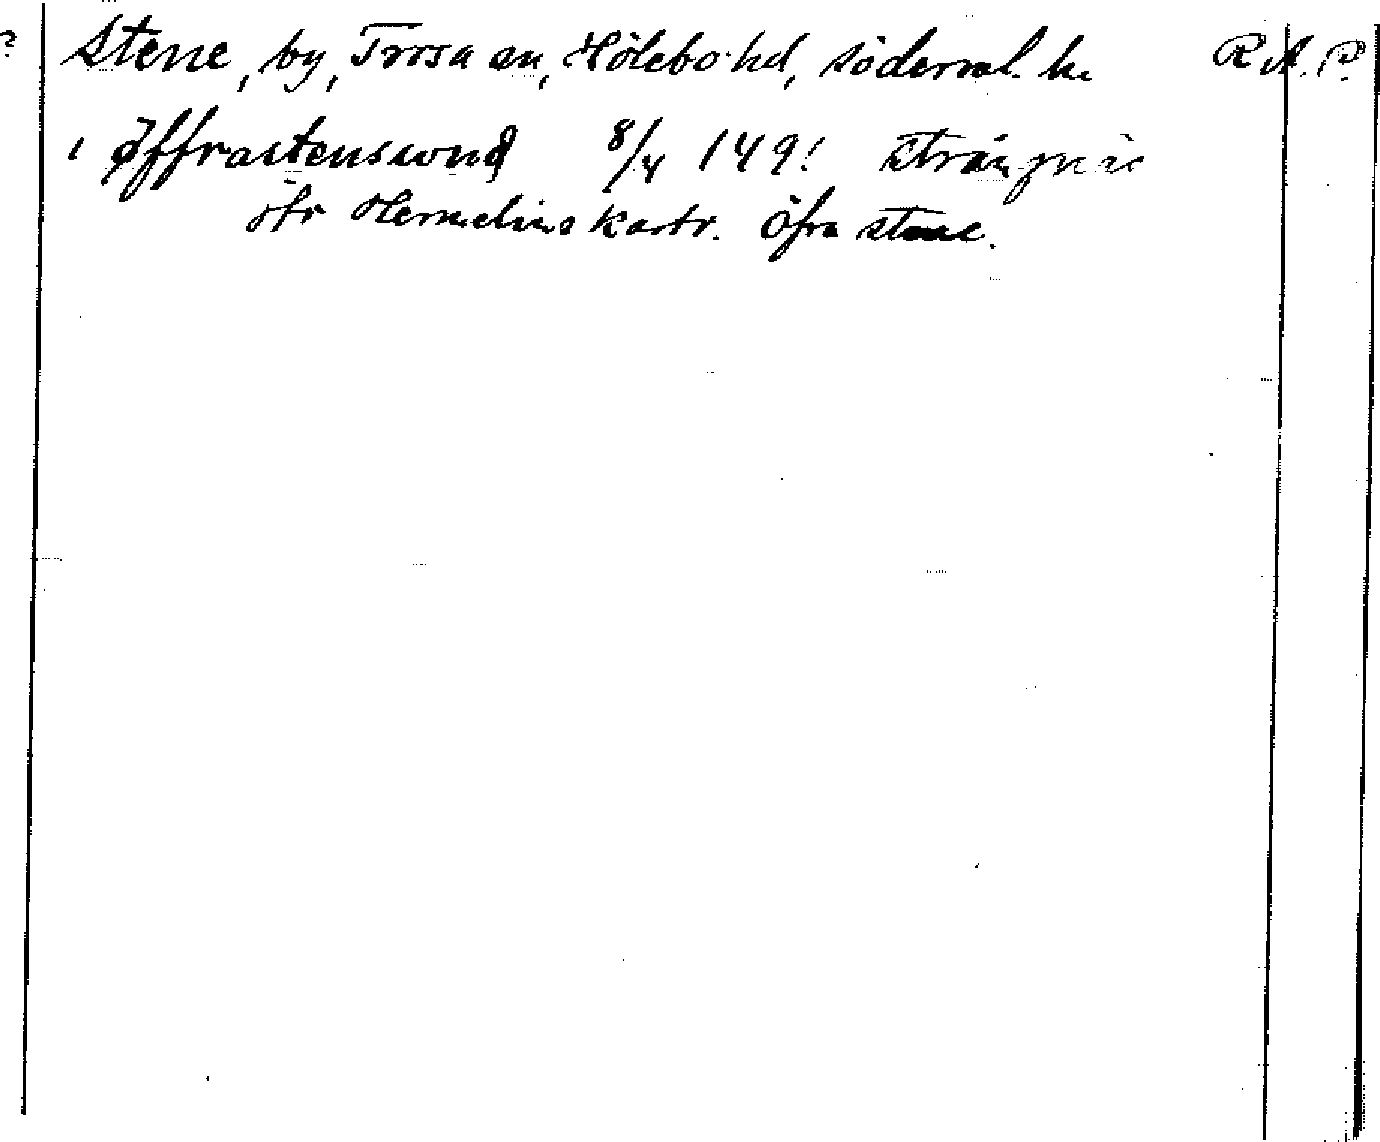 Stene, by, Trosa sn, Hölebo hd, Söderml. ln R.A.P.
i Öffrastenswnd 8/4 1491 Strängnäs
jfr Hermelins kartv. Öfra Stene.